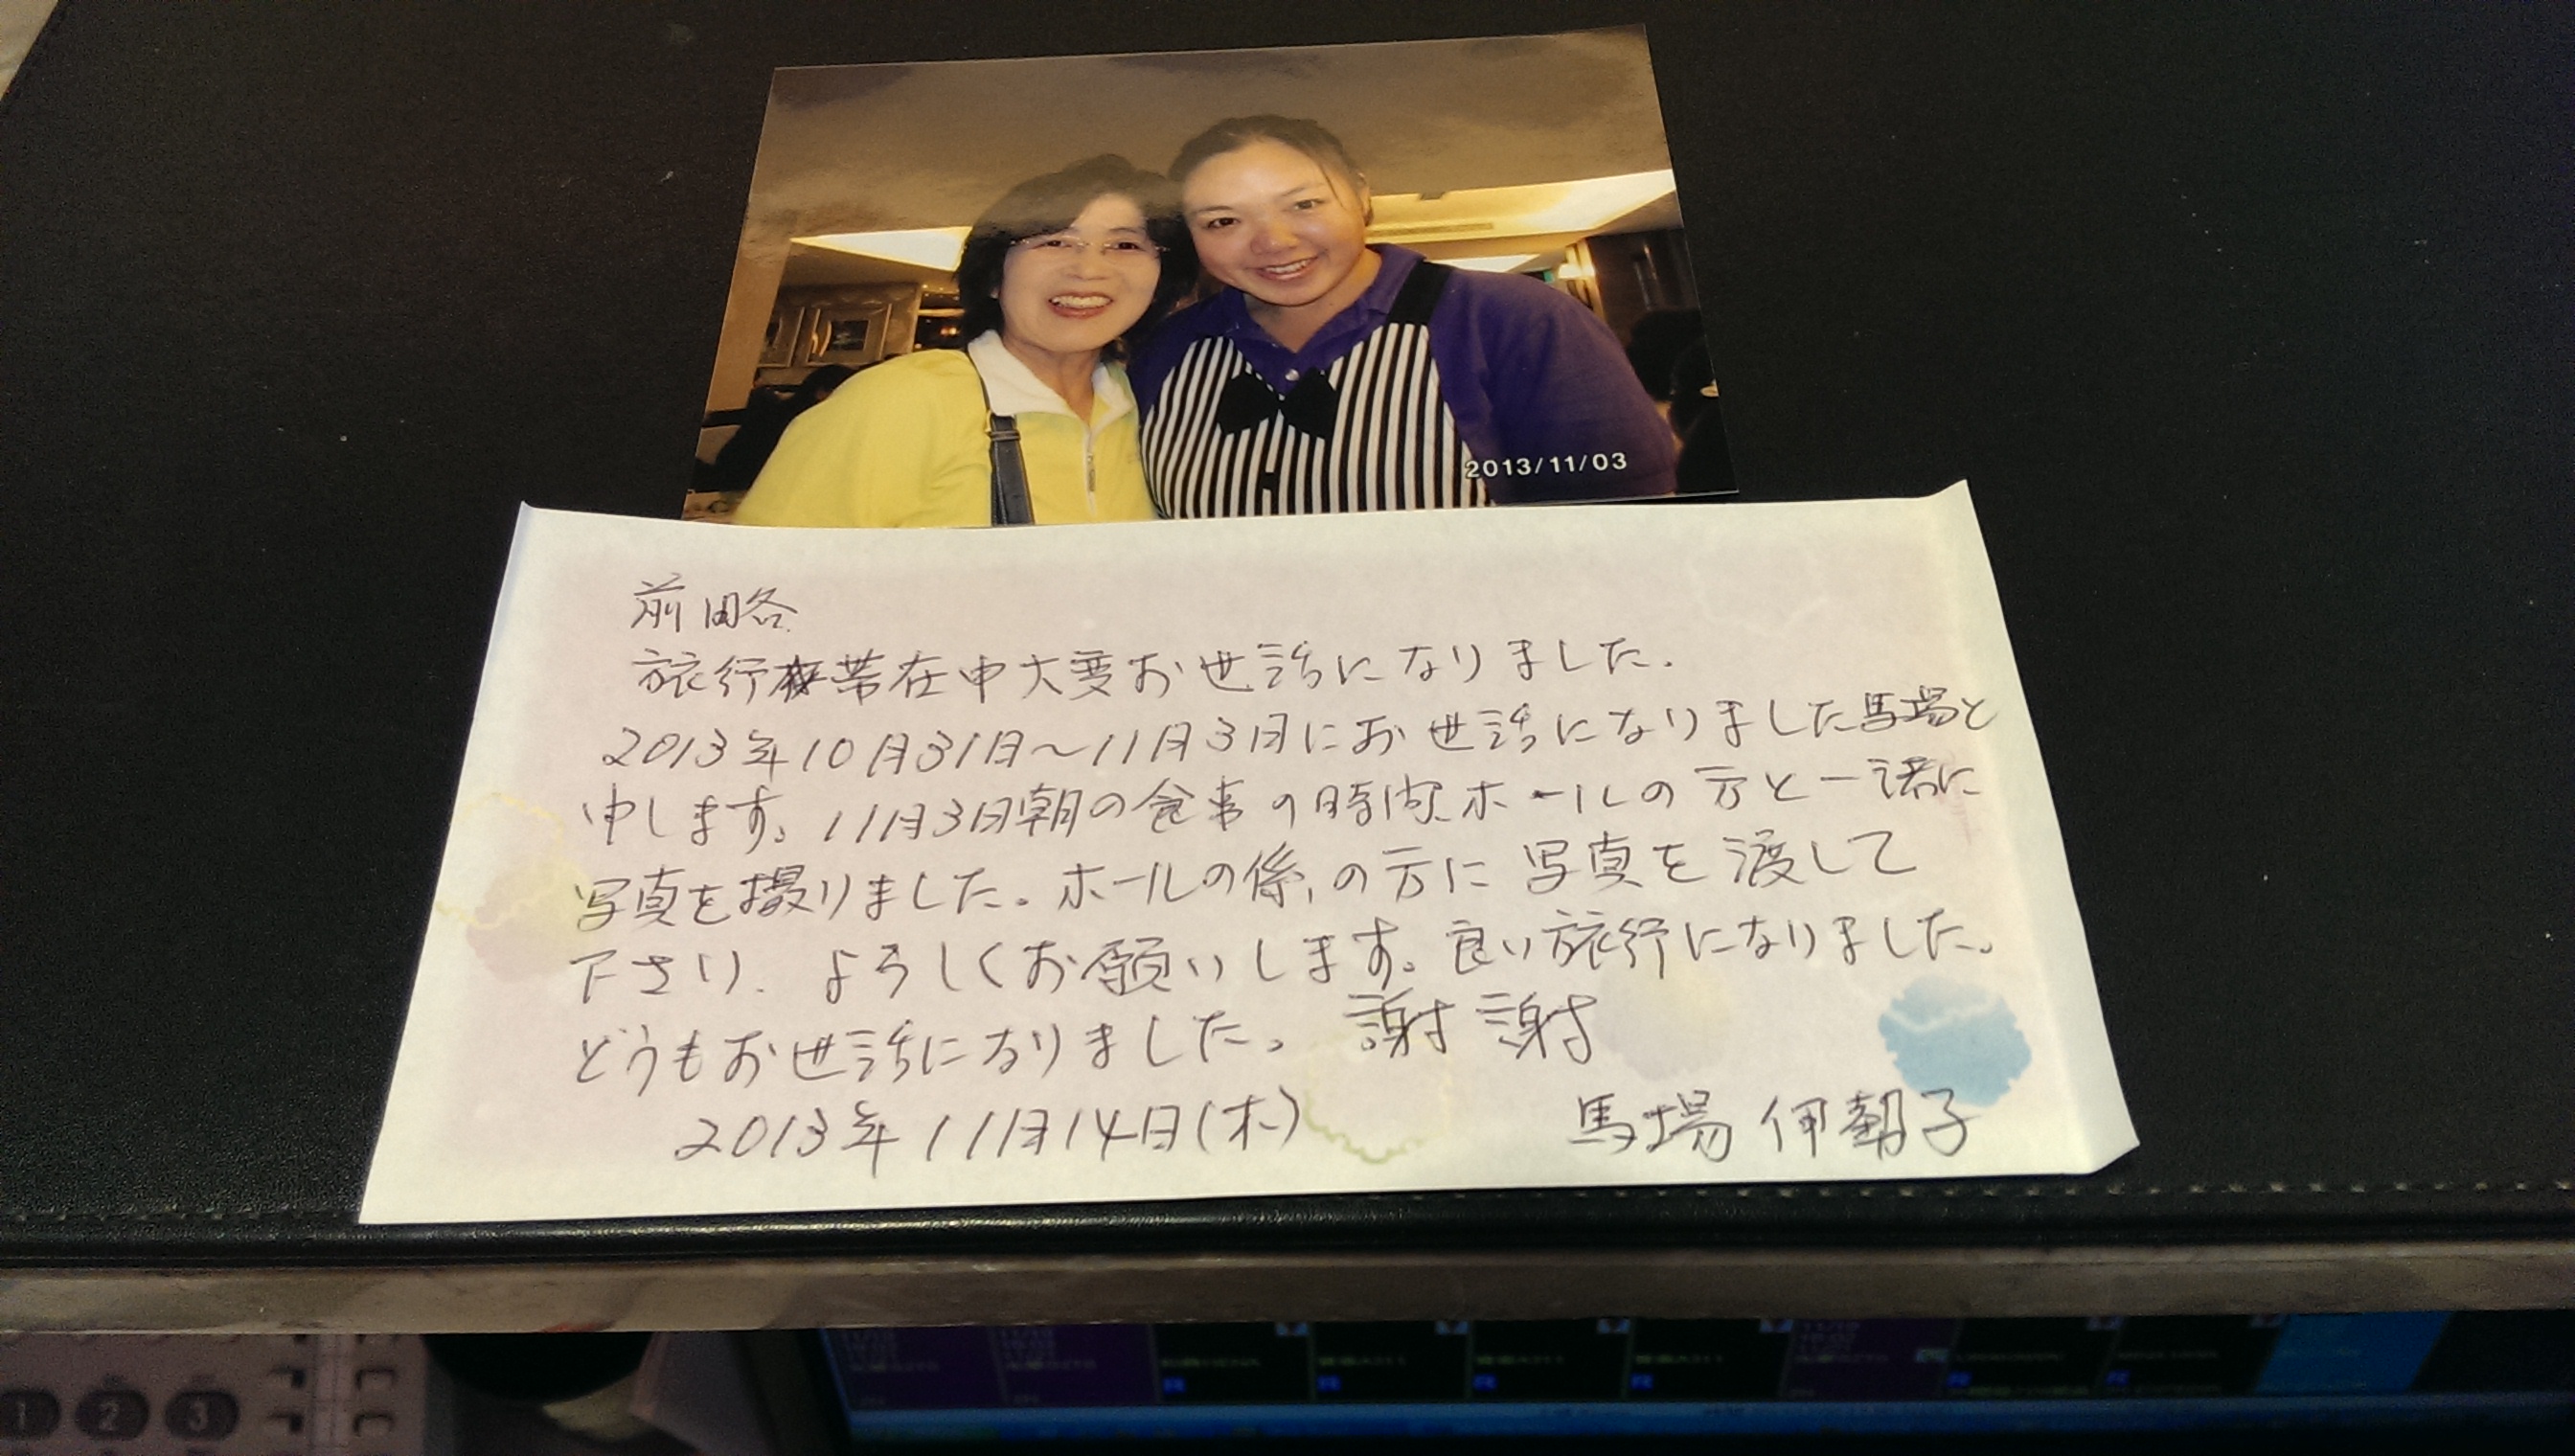 2013/11/03
前略
旅行滞在中大変お世話になりました.
2013年10月31日～11月3日にお世話になりました馬場と
申します。11月3日朝の食事の時間、ホールの方と一諸に
写真を撮りました。ホールの係の方に写真を渡して
下さい、よろしくお願いします。良い旅行になりました。
どうもお世話になりました。謝謝
2013年11月14日(木)
馬場 伊朝子
1 2 3